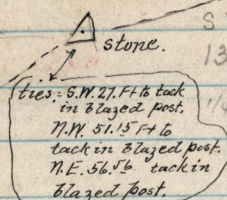 stone.
S
13
ties = S.W. 27. Ft to tack
in blazed post.
N.W. 51.15 Ft to
tack in blazed post.
N.E. 56.56 tack in
blazed post.